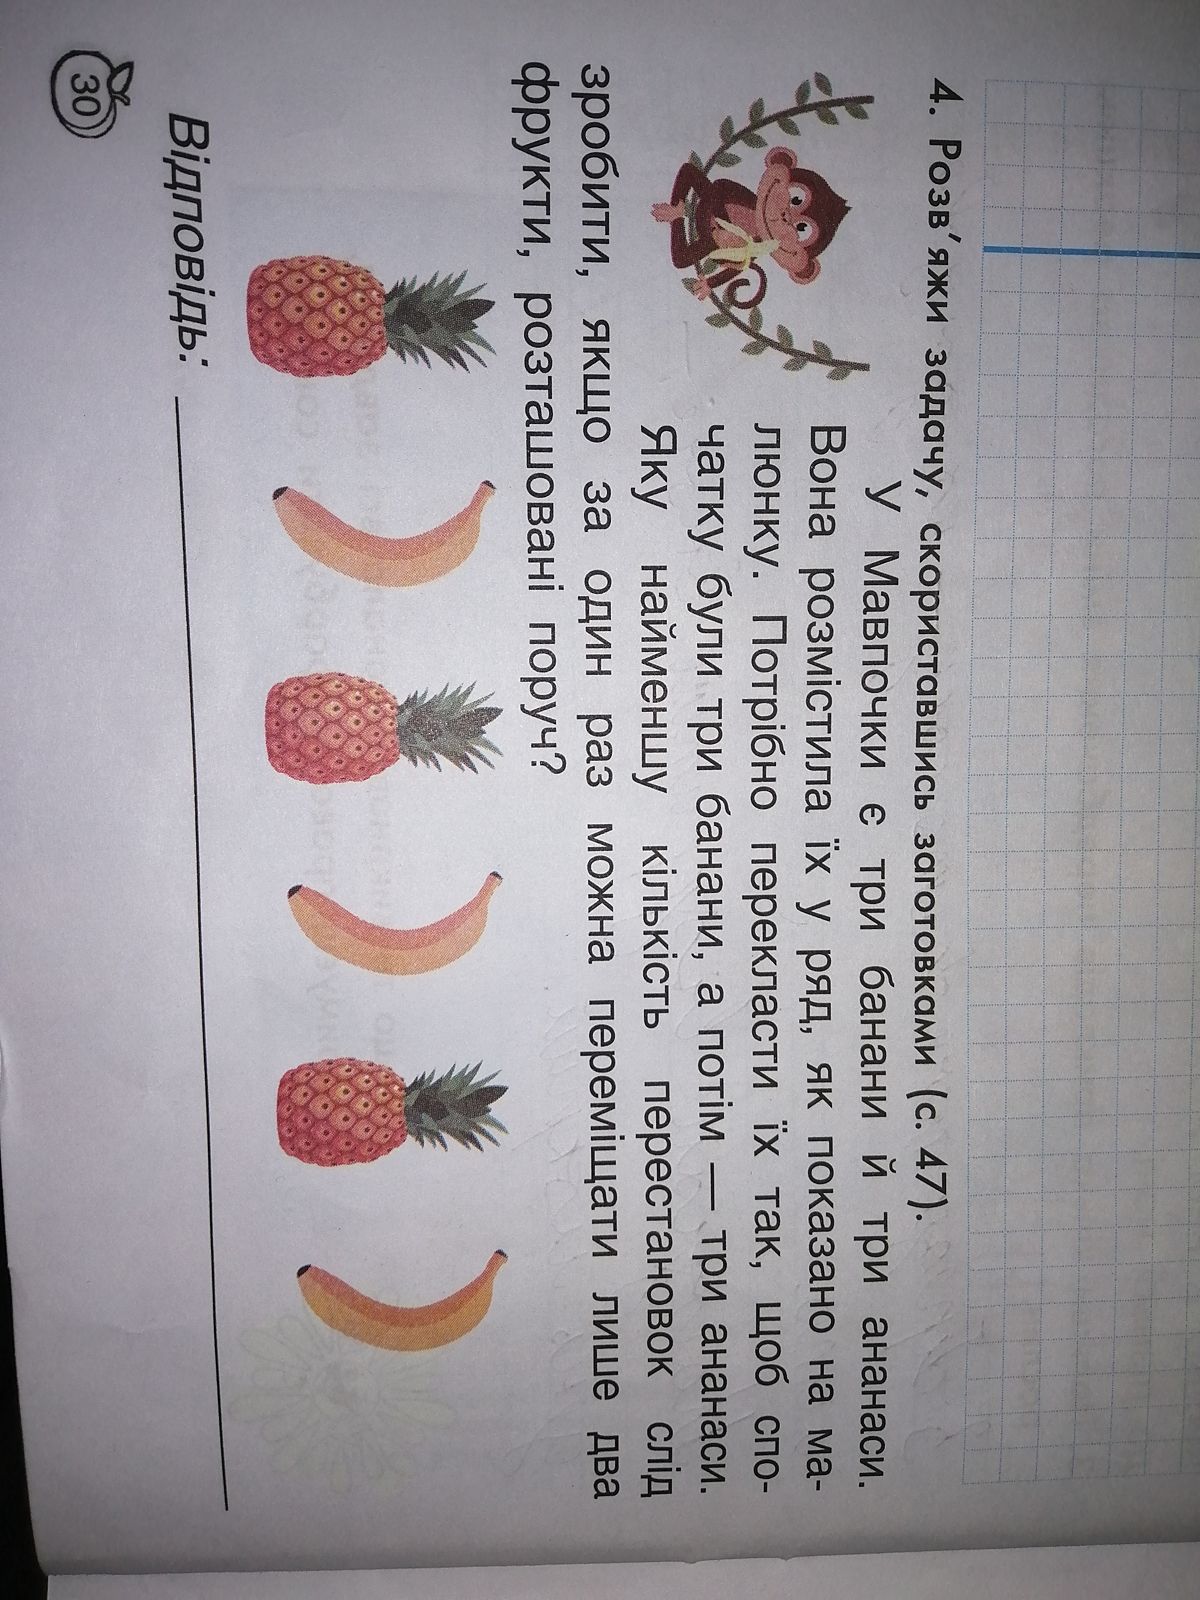 4. Розв’яжи задачу, скориставшись заготовками (с. 47).
У Мавпочки є три банани й три ананаси.
Вона розмістила їх у ряд, як показано на ма-
люнку. Потрібно перекласти їх так, щоб спо-
чатку були три банани, а потім — три ананаси.
Яку найменшу кількість перестановок слід
зробити, якщо за один раз можна переміщати лише два
фрукти, розташовані поруч?
Відповідь:
30